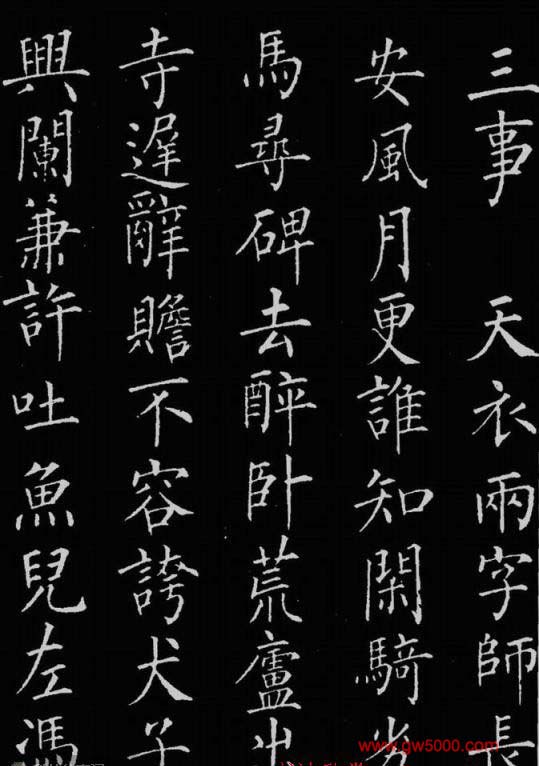 三事 天衣兩字師長
安風月更誰知閑騎劣
馬尋碑去醉卧荒廬出
寺遲辭贍不容誇犬子
興闌兼許吐魚兒左馮
www.gw5000.com